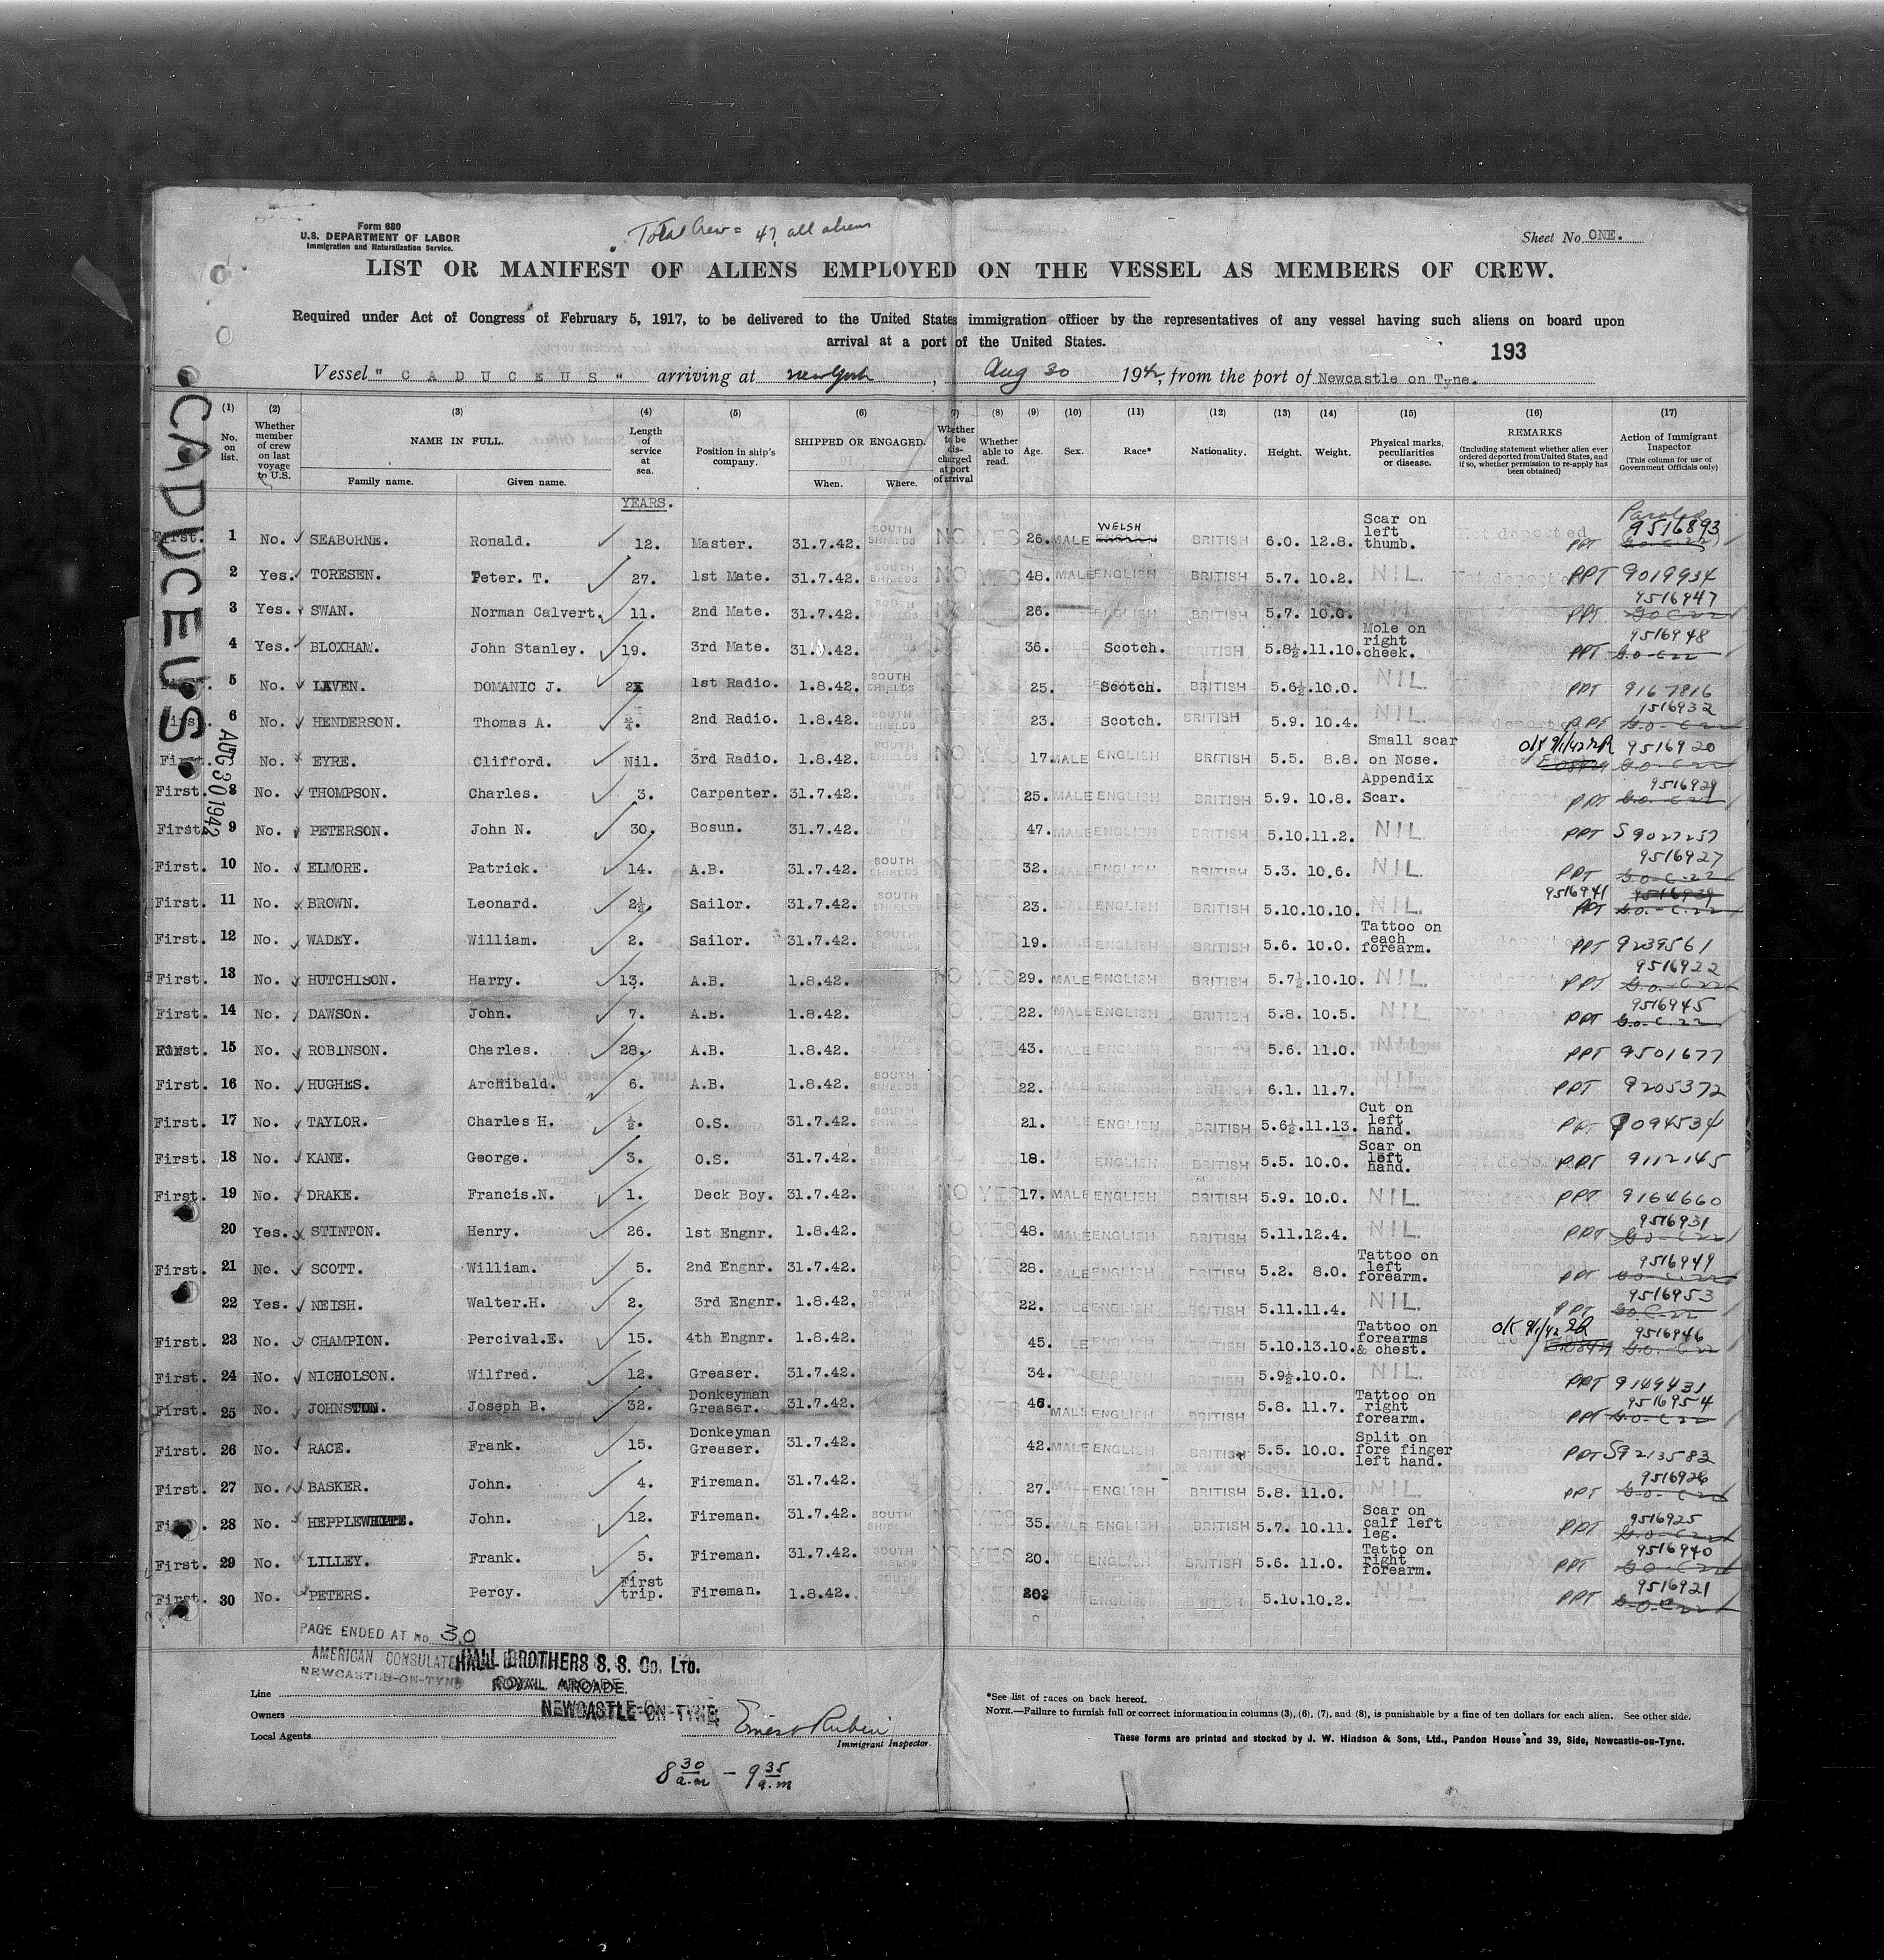 Form 680
U.S. DEPARTMENT OF LABOR
Immigration and Naturalization Service.
Total Crew = 47, all aliens
Sheet No. ONE.
LIST OR MANIFEST OF ALIENS EMPLOYED ON THE VESSEL AS MEMBERS OF CREW.
Required under Act of Congress of February 5, 1917, to be delivered to the United States immigration officer by the representatives of any vessel having such aliens on board upon
arrival at a port of the United States.
193
Vessel " CADUCEUS " arriving at New York, Aug 30 1942, from the port of Newcastle on Tyne.
CADUCEUS
AUG 30 1942
(1) (2) (3) (4) (5) (6) (7) (8) (9) (10) (11) (12) (13) (14) (15) (16) (17)
No. on list. Whether member of crew on last voyage to U.S. NAME IN FULL. Family name. Given name. Length of service at sea. Position in ship's company. SHIPPED OR ENGAGED. When. Where. Whether to be discharged at port of arrival Whether able to read. Age. Sex. Race* Nationality. Height. Weight. Physical marks, peculiarities or disease. REMARKS (Including statement whether alien ever ordered deported from United States, and if so, whether permission to re-apply has been obtained) Action of Immigrant Inspector (This column for use of Government Officials only)
YEARS.
First. 1 No. SEABORNE. Ronald. 12. Master. 31.7.42. SOUTH SHIELDS NO YES 26. MALE WELSH BRITISH 6.0. 12.8. Scar on left thumb. Not deported PPT Paroled 9516893
2 Yes. TORESEN. Peter. T. 27. 1st Mate. 31.7.42. SOUTH SHIELDS NO YES 48. MALE ENGLISH BRITISH 5.7. 10.2. NIL. Not deported PPT 9019934
3 Yes. SWAN. Norman Calvert. 11. 2nd Mate. 31.7.42. 26. ENGLISH BRITISH 5.7. 10.0. NIL. PPT 9516947
4 Yes. BLOXHAM. John Stanley. 19. 3rd Mate. 31. .42. 36. MALE Scotch. BRITISH 5.8½. 11.10. Mole on right cheek. PPT 9516948
First. 5 No. LAVEN. DOMANIC J. 1st Radio. 1.8.42. SOUTH SHIELDS 25. Scotch. BRITISH 5.6½. 10.0. NIL. PPT 9167816
First. 6 No. HENDERSON. Thomas A. 2nd Radio. 1.8.42. SOUTH SHIELDS 23. Scotch. BRITISH 5.9. 10.4. NIL. PPT 9516932
First. No. EYRE. Clifford. Nil. 3rd Radio. 1.8.42. SOUTH SHIELDS NO YES 17. MALE ENGLISH BRITISH 5.5. 8.8. Small scar on Nose. OK 9/1/42 9516920
First. 8 No. THOMPSON. Charles. 3. Carpenter. 31.7.42. NO YES 25. MALE ENGLISH BRITISH 5.9. 10.8. Appendix Scar. PPT 9516929
First. 9 No. PETERSON. John N. 30. Bosun. 31.7.42. 47. MALE ENGLISH BRITISH 5.10. 11.2. NIL. PPT S 9027257
First. 10 No. ELMORE. Patrick. 14. A.B. 31.7.42. SOUTH SHIELDS 32. MALE ENGLISH BRITISH 5.3. 10.6. NIL. PPT 9516927
First. 11 No. BROWN. Leonard. 2½. Sailor. 31.7.42. SOUTH SHIELDS 23. MALE ENGLISH BRITISH 5.10. 10.10. NIL. 9516941 PPT
First. 12 No. WADEY. William. 2. Sailor. 31.7.42. YES 19. MALE ENGLISH BRITISH 5.6. 10.0. Tattoo on each forearm. PPT 9239561
First. 13 No. HUTCHISON. Harry. 13. A.B. 1.8.42. NO YES 29. MALE ENGLISH BRITISH 5.7½. 10.10. NIL. PPT 9516922
First. 14 No. DAWSON. John. 7. A.B. 1.8.42. NO YES 22. MALE ENGLISH BRITISH 5.8. 10.5. NIL. PPT 9516945
First. 15 No. ROBINSON. Charles. 28. A.B. 1.8.42. NO YES 43. MALE ENGLISH BRITISH 5.6. 11.0. NIL. PPT 9501677
First. 16 No. HUGHES. Archibald. 6. A.B. 1.8.42. SOUTH SHIELDS YES 22. BRITISH 6.1. 11.7. NIL. PPT 9205372
First. 17 No. TAYLOR. Charles H. ½. O.S. 31.7.42. SOUTH SHIELDS 21. ENGLISH BRITISH 5.6½. 11.13. Cut on left hand. PPT 9094534
First. 18 No. KANE. George. 3. O.S. 31.7.42. 18. ENGLISH BRITISH 5.5. 10.0. Scar on left hand. PPT 9112145
First. 19 No. DRAKE. Francis.N. 1. Deck Boy. 31.7.42. NO YES 17. MALE ENGLISH BRITISH 5.9. 10.0. NIL. PPT 9164660
20 Yes. STINTON. Henry. 26. 1st Engnr. 1.8.42. NO YES 48. MALE ENGLISH BRITISH 5.11. 12.4. NIL. PPT 9516931
First. 21 No. SCOTT. William. 5. 2nd Engnr. 31.7.42. 28. MALE ENGLISH BRITISH 5.2. 8.0. Tattoo on left forearm. PPT 9516949
22 Yes. NEISH. Walter.H. 2. 3rd Engnr. 1.8.42. 22. MALE ENGLISH BRITISH 5.11. 11.4. NIL. PPT 9516953
First. 23 No. CHAMPION. Percival.E. 15. 4th Engnr. 1.8.42. 45. ENGLISH BRITISH 5.10. 13.10. Tattoo on forearms & chest. OK 9/1/42 9516946
First. 24 No. NICHOLSON. Wilfred. 12. Greaser. 31.7.42. 34. ENGLISH BRITISH 5.9½. 10.0. NIL. Not deported PPT 9149431
First. 25 No. JOHNSTON. Joseph B. 32. Donkeyman Greaser. 31.7.42. 46. MALE ENGLISH BRITISH 5.8. 11.7. Tattoo on right forearm. PPT 9516954
First. 26 No. RACE. Frank. 15. Donkeyman Greaser. 31.7.42. 42. MALE ENGLISH BRITISH 5.5. 10.0. Split on fore finger left hand. PPT S9213583
First. 27 No. BASKER. John. 4. Fireman. 31.7.42. 27. MALE ENGLISH BRITISH 5.8. 11.0. NIL. PPT 9516926
28 No. HEPPLEWHITE. John. 12. Fireman. 31.7.42. SOUTH SHIELDS 35. MALE ENGLISH BRITISH 5.7. 10.11. Scar on calf left leg. PPT 9516925
First. 29 No. LILLEY. Frank. 5. Fireman. 31.7.42. SOUTH SHIELDS YES 20. ENGLISH BRITISH 5.6. 11.0. Tatto on right forearm. PPT 9516940
First. 30 No. PETERS. Percy. First trip. Fireman. 1.8.42. SOUTH SHIELDS ENGLISH BRITISH 5.10. 10.2. NIL. PPT 9516921
PAGE ENDED AT No. 30
AMERICAN CONSULATE
NEWCASTLE-ON-TYNE
HALL BROTHERS S. S. Co. LTD.
ROYAL ARCADE.
NEWCASTLE-ON-TYNE.
Line
Owners
Local Agents
Ernest Rubin
Immigrant Inspector.
8 30 a.m — 9 35 a.m
*See list of races on back hereof.
NOTE.—Failure to furnish full or correct information in columns (3), (6), (7), and (8), is punishable by a fine of ten dollars for each alien. See other side.
These forms are printed and stocked by J. W. Hindson & Sons, Ltd., Pandon House and 39, Side, Newcastle-on-Tyne.